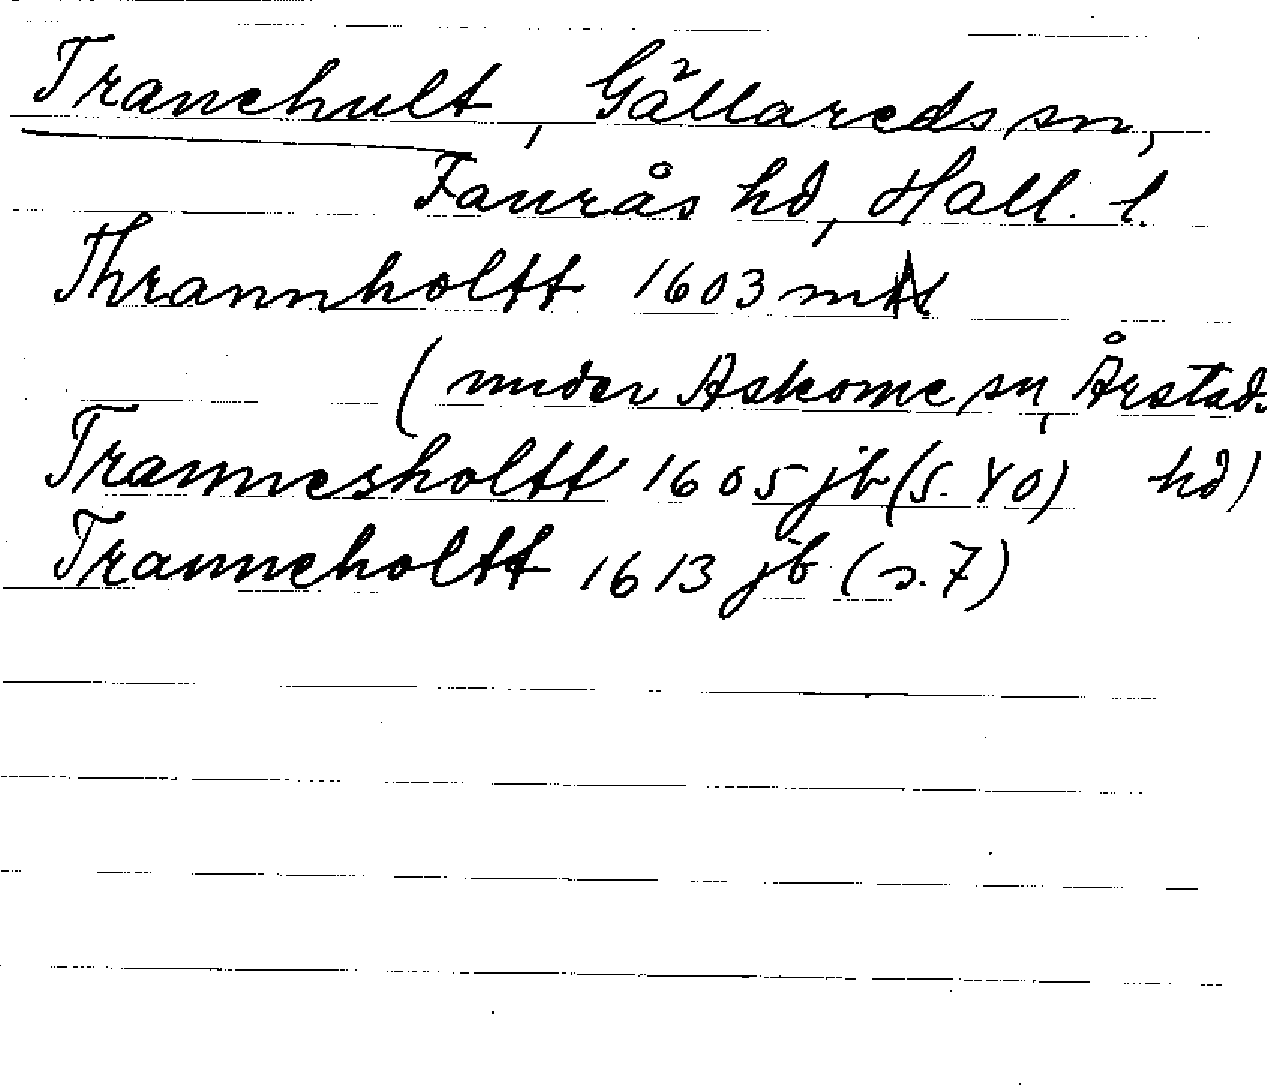 Tranehult, Gällareds sn,
Faurås hd, Hall. l.
Thrannholtt 1603
(under Askome sn, Årstad.
Trannesholtt 1605 jb (s. 40) hd)
Tranneholtt 1613 jb (s. 7)